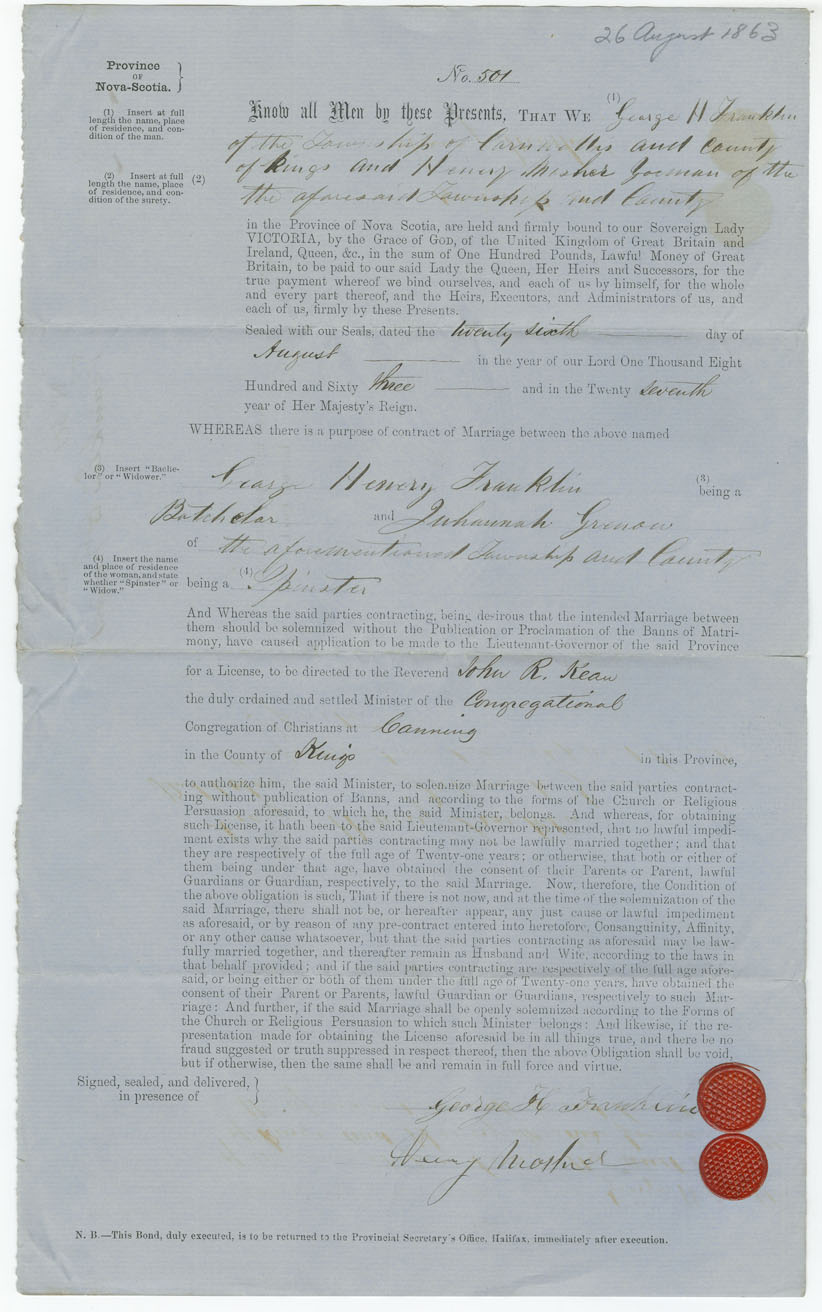 26 August 1863
Province
OF
Nova-Scotia.
No. 501
(1) Insert at full
length the name, place
of residence, and con-
dition of the man.
Know all Men by these Presents, THAT WE (1) George H Franklin
of the Township of Cornwallis and County
(2) Insert at full
length the name, place
of residence, and con-
dition of the surety.
(2)
of Kings and Henry Mosher Yoeman of the
the aforesaid Township and County
in the Province of Nova Scotia, are held and firmly bound to our Sovereign Lady
VICTORIA, by the Grace of GOD, of the United Kingdom of Great Britain and
Ireland, Queen, &c., in the sum of One Hundred Pounds, Lawful Money of Great
Britain, to be paid to our said Lady the Queen, Her Heirs and Successors, for the
true payment whereof we bind ourselves, and each of us by himself, for the whole
and every part thereof, and the Heirs, Executors, and Administrators of us, and
each of us, firmly by these Presents.
Sealed with our Seals, dated the twenty sixth day of
August in the year of our Lord One Thousand Eight
Hundred and Sixty three and in the Twenty seventh
year of Her Majesty's Reign.
WHEREAS there is a purpose of contract of Marriage between the above named
(3) Insert "Bache-
lor" or "Widower."
George Henry Franklin (3) being a
Batchelor and Juhannah Grenow
of the aforementioned Township and County
(4) Insert the name
and place of residence
of the woman, and state
whether "Spinster" or
"Widow."
being a (4) Spinster
And Whereas the said parties contracting, being desirous that the intended Marriage between
them should be solemnized without the Publication or Proclamation of the Banns of Matri-
mony, have caused application to be made to the Lieutenant-Governor of the said Province
for a License, to be directed to the Reverend John R. Kean
the duly ordained and settled Minister of the Congregational
Congregation of Christians at Canning
in the County of Kings in this Province,
to authorize him, the said Minister, to solemnize Marriage between the said parties contract-
ing without publication of Banns, and according to the forms of the Church or Religious
Persuasion aforesaid, to which he, the said Minister, belongs. And whereas, for obtaining
such License, it hath been to the said Lieutenant-Governor represented, that no lawful impedi-
ment exists why the said parties contracting may not be lawfully married together; and that
they are respectively of the full age of Twenty-one years; or otherwise, that both or either of
them being under that age, have obtained the consent of their Parents or Parent, lawful
Guardians or Guardian, respectively, to the said Marriage. Now, therefore, the Condition of
the above obligation is such, That if there is not now, and at the time of the solemnization of the
said Marriage, there shall not be, or hereafter appear, any just cause or lawful impediment
as aforesaid, or by reason of any pre-contract entered into heretofore, Consanguinity, Affinity,
or any other cause whatsoever, but that the said parties contracting as aforesaid may be law-
fully married together, and thereafter remain as Husband and Wife, according to the laws in
that behalf provided; and if the said parties contracting are respectively of the full age afore-
said, or being either or both of them under the full age of Twenty-one years, have obtained the
consent of their Parent or Parents, lawful Guardian or Guardians, respectively to such Mar-
riage: And further, if the said Marriage shall be openly solemnized according to the Forms of
the Church or Religious Persuasion to which such Minister belongs: And likewise, if the re-
presentation made for obtaining the License aforesaid be in all things true, and there be no
fraud suggested or truth suppressed in respect thereof, then the above Obligation shall be void,
but if otherwise, then the same shall be and remain in full force and virtue.
Signed, sealed, and delivered,
in presence of
George H Franklin
Henry Mosher
N. B.—This Bond, duly executed, is to be returned to the Provincial Secretary's Office, Halifax, immediately after execution.